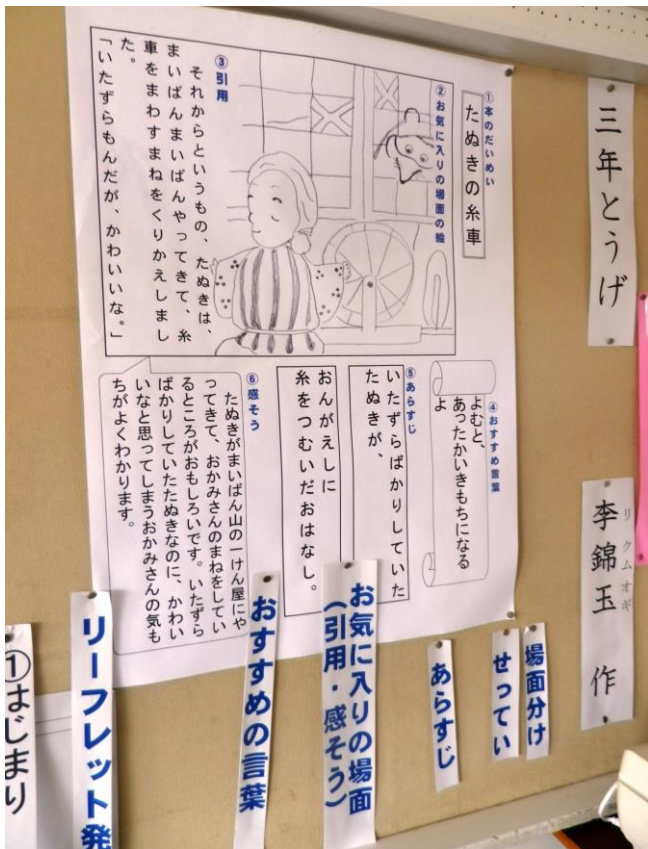 三年とうげ
李錦玉 作
リ クムオギ
①本のだいめい
たぬきの糸車
②お気に入りの場面の絵
③引用
それからというもの、たぬきは、
まいばんまいばんやってきて、糸
車をまわすまねをくりかえしまし
た。
「いたずらもんだが、かわいいな。」
④おすすめ言葉
よむと、
あったかいきもちになる
よ
⑤あらすじ
いたずらばかりしていた
たぬきが、
おんがえしに
糸をつむいだおはなし。
⑥感そう
たぬきがまいばん山の一けん屋にや
ってきて、おかみさんのまねをしてい
るところがおもしろいです。いたずら
ばかりしていたたぬきなのに、かわい
いなと思ってしまうおかみさんの気も
ちがよくわかります。
場面分け
せってい
あらすじ
お気に入りの場面
(引用・感そう)
おすすめの言葉
リーフレット発
①はじまり